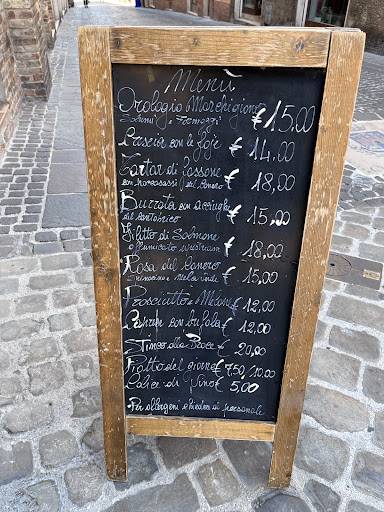 Menù
Orologio Marchigiano € 15,00
Salumi e Formaggi
Crescia con le foje € 14,00
Tartar di Cassone € 18,00
del Conero
Burrata con acciughe € 15,00
del Cantabrico
Filetto di Salmone € 18,00
Affumicato
Rosa del Conero € 15,00
e Mela verde
Prosciutto e Melone € 12,00
Caprese con bufala € 12,00
Stinco alla Brace € 20,00
Piatto del giorno € 7,50/10,00
Calice di Vino € 5,00
Per allergeni chiedere al personale